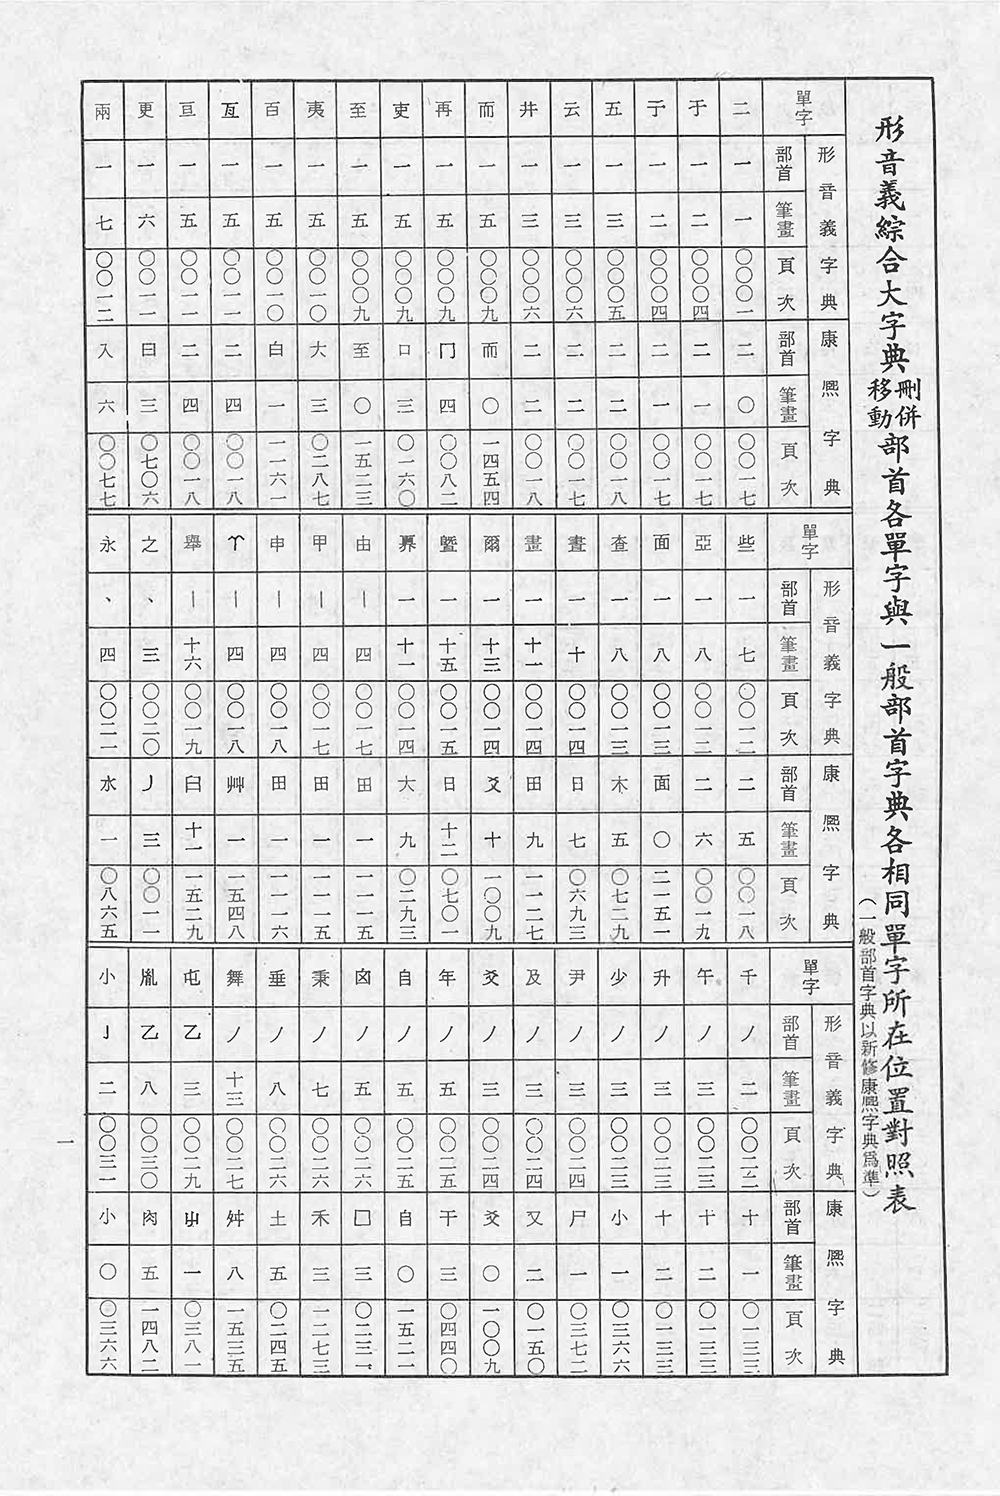 形音義綜合大字典刪併移動部首各單字與一般部首字典各相同單字所在位置對照表
（一般部首字典以新修康熙字典爲準）
單字 形音義字典 部首 筆畫 頁次 康熙字典 部首 筆畫 頁次
二 一 一 〇〇〇一 二 〇 〇〇一七
于 一 二 〇〇〇四 二 一 〇〇一七
亍 一 二 〇〇〇四 二 一 〇〇一七
五 一 三 〇〇〇五 二 二 〇〇一八
云 一 三 〇〇〇六 二 二 〇〇一七
井 一 三 〇〇〇六 二 二 〇〇一八
而 一 五 〇〇〇九 而 〇 一四五四
再 一 五 〇〇〇九 冂 四 〇〇八二
吏 一 五 〇〇〇九 口 三 〇一六〇
至 一 五 〇〇〇九 至 〇 一五二三
夷 一 五 〇〇一〇 大 三 〇二八七
百 一 五 〇〇一〇 白 一 一一六一
亙 一 五 〇〇一一 二 四 〇〇一八
亘 一 五 〇〇一一 二 四 〇〇一八
更 一 六 〇〇一一 曰 三 〇七〇六
兩 一 七 〇〇一二 入 六 〇〇七七
單字 形音義字典 部首 筆畫 頁次 康熙字典 部首 筆畫 頁次
些 一 七 〇〇一二 二 五 〇〇一八
亞 一 八 〇〇一二 二 六 〇〇一九
面 一 八 〇〇一三 面 〇 二一五一
查 一 八 〇〇一三 木 五 〇七二九
晝 一 十 〇〇一四 日 七 〇六九三
畫 一 十一 〇〇一四 田 九 一一二七
爾 一 十三 〇〇一四 爻 十 一〇〇九
暨 一 十五 〇〇一五 日 十二 〇七〇一
奡 一 十一 〇〇一四 大 九 〇二九三
由 丨 四 〇〇一七 田 一 一一一五
甲 丨 四 〇〇一七 田 一 一一一五
申 丨 四 〇〇一八 田 一 一一一六
𦫳 丨 四 〇〇一八 艸 一 一五四八
舉 丨 十六 〇〇一九 臼 十一 一五二九
之 丶 三 〇〇二〇 丿 三 〇〇一一
永 丶 四 〇〇二一 水 一 〇八六五
單字 形音義字典 部首 筆畫 頁次 康熙字典 部首 筆畫 頁次
千 丿 二 〇〇二二 十 一 〇一三三
午 丿 三 〇〇二三 十 二 〇一三三
升 丿 三 〇〇二三 十 二 〇一三三
少 丿 三 〇〇二三 小 一 〇三六六
尹 丿 三 〇〇二四 尸 一 〇三七二
及 丿 三 〇〇二四 又 二 〇一五〇
爻 丿 三 〇〇二四 爻 〇 一〇〇九
年 丿 五 〇〇二五 干 三 〇四四〇
自 丿 五 〇〇二五 自 〇 一五二一
囟 丿 五 〇〇二六 囗 三 〇二三一
秉 丿 七 〇〇二六 禾 三 一二七三
垂 丿 八 〇〇二六 土 五 〇二四五
舞 丿 十三 〇〇二七 舛 八 一五三五
屯 乙 三 〇〇二九 屮 一 〇三八一
胤 乙 八 〇〇三〇 肉 五 一四八二
小 亅 二 〇〇三一 小 〇 〇三六六
一